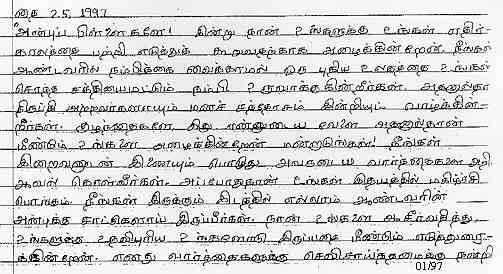 தை 25, 1997
அன்புப் பிள்ளைகளே! இன்று நான் உங்களுக்கு உங்கள் எதிர்-
காலத்தை பற்றி எடுத்துக் கூறுவதற்காக அழைக்கின்றேன். நீங்கள்
ஆண்டவரில் நம்பிக்கை வைக்காமல் ஒரு புதிய உலகத்தை உங்கள்
சொந்த சக்தியைமட்டும் நம்பி உருவாக்குகின்றீர்கள். அதனால்தான்
திருப்தி அற்றவர்களாயும் மனச் சந்தோசம் இன்றியும் வாழ்கின்-
றீர்கள். குழந்தைகளே இது என்னுடைய வேளை அதனால்தான்
மீண்டும் உங்களை அழைக்கின்றேன் மன்றாடுங்கள்! நீங்கள்
இறைவனுடன் இணையும் பொழுது அவருடைய வார்த்தைகளை அறி
ஆவல் கொள்வீர்கள். அப்போதுதான் உங்கள் இதயத்தில் மகிழ்ச்சி
பொங்கும். நீங்கள் இருக்கும் இடத்தில் எல்லாம் ஆண்டவரின்
அன்புக்கு சாட்சிகளாய் இருப்பீர்கள். நான் உங்களை ஆசீர்வதித்து
உங்களுக்கு உதவிபுரிய உங்களோடு இருப்பதை மீண்டும் எடுத்துரை-
க்கின்றேன். எனது வார்த்தைகளுக்கு செவிசாய்த்தமைக்கு நன்றி
01/97